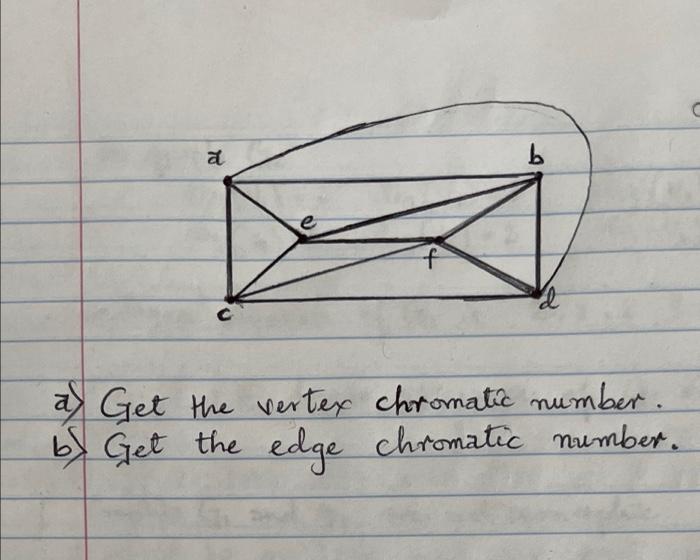 a b
e
f
c d
a) Get the vertex chromatic number.
b) Get the edge chromatic number.